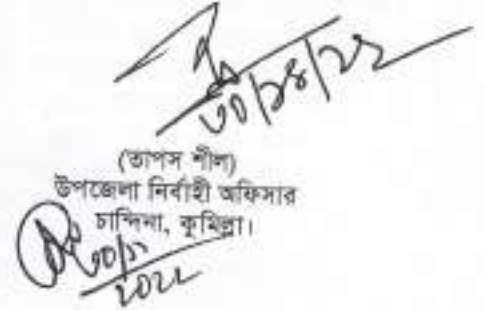 (তাপস শীল)
উপজেলা নির্বাহী অফিসার
চান্দিনা, কুমিল্লা।
৩০/১১
২০২২